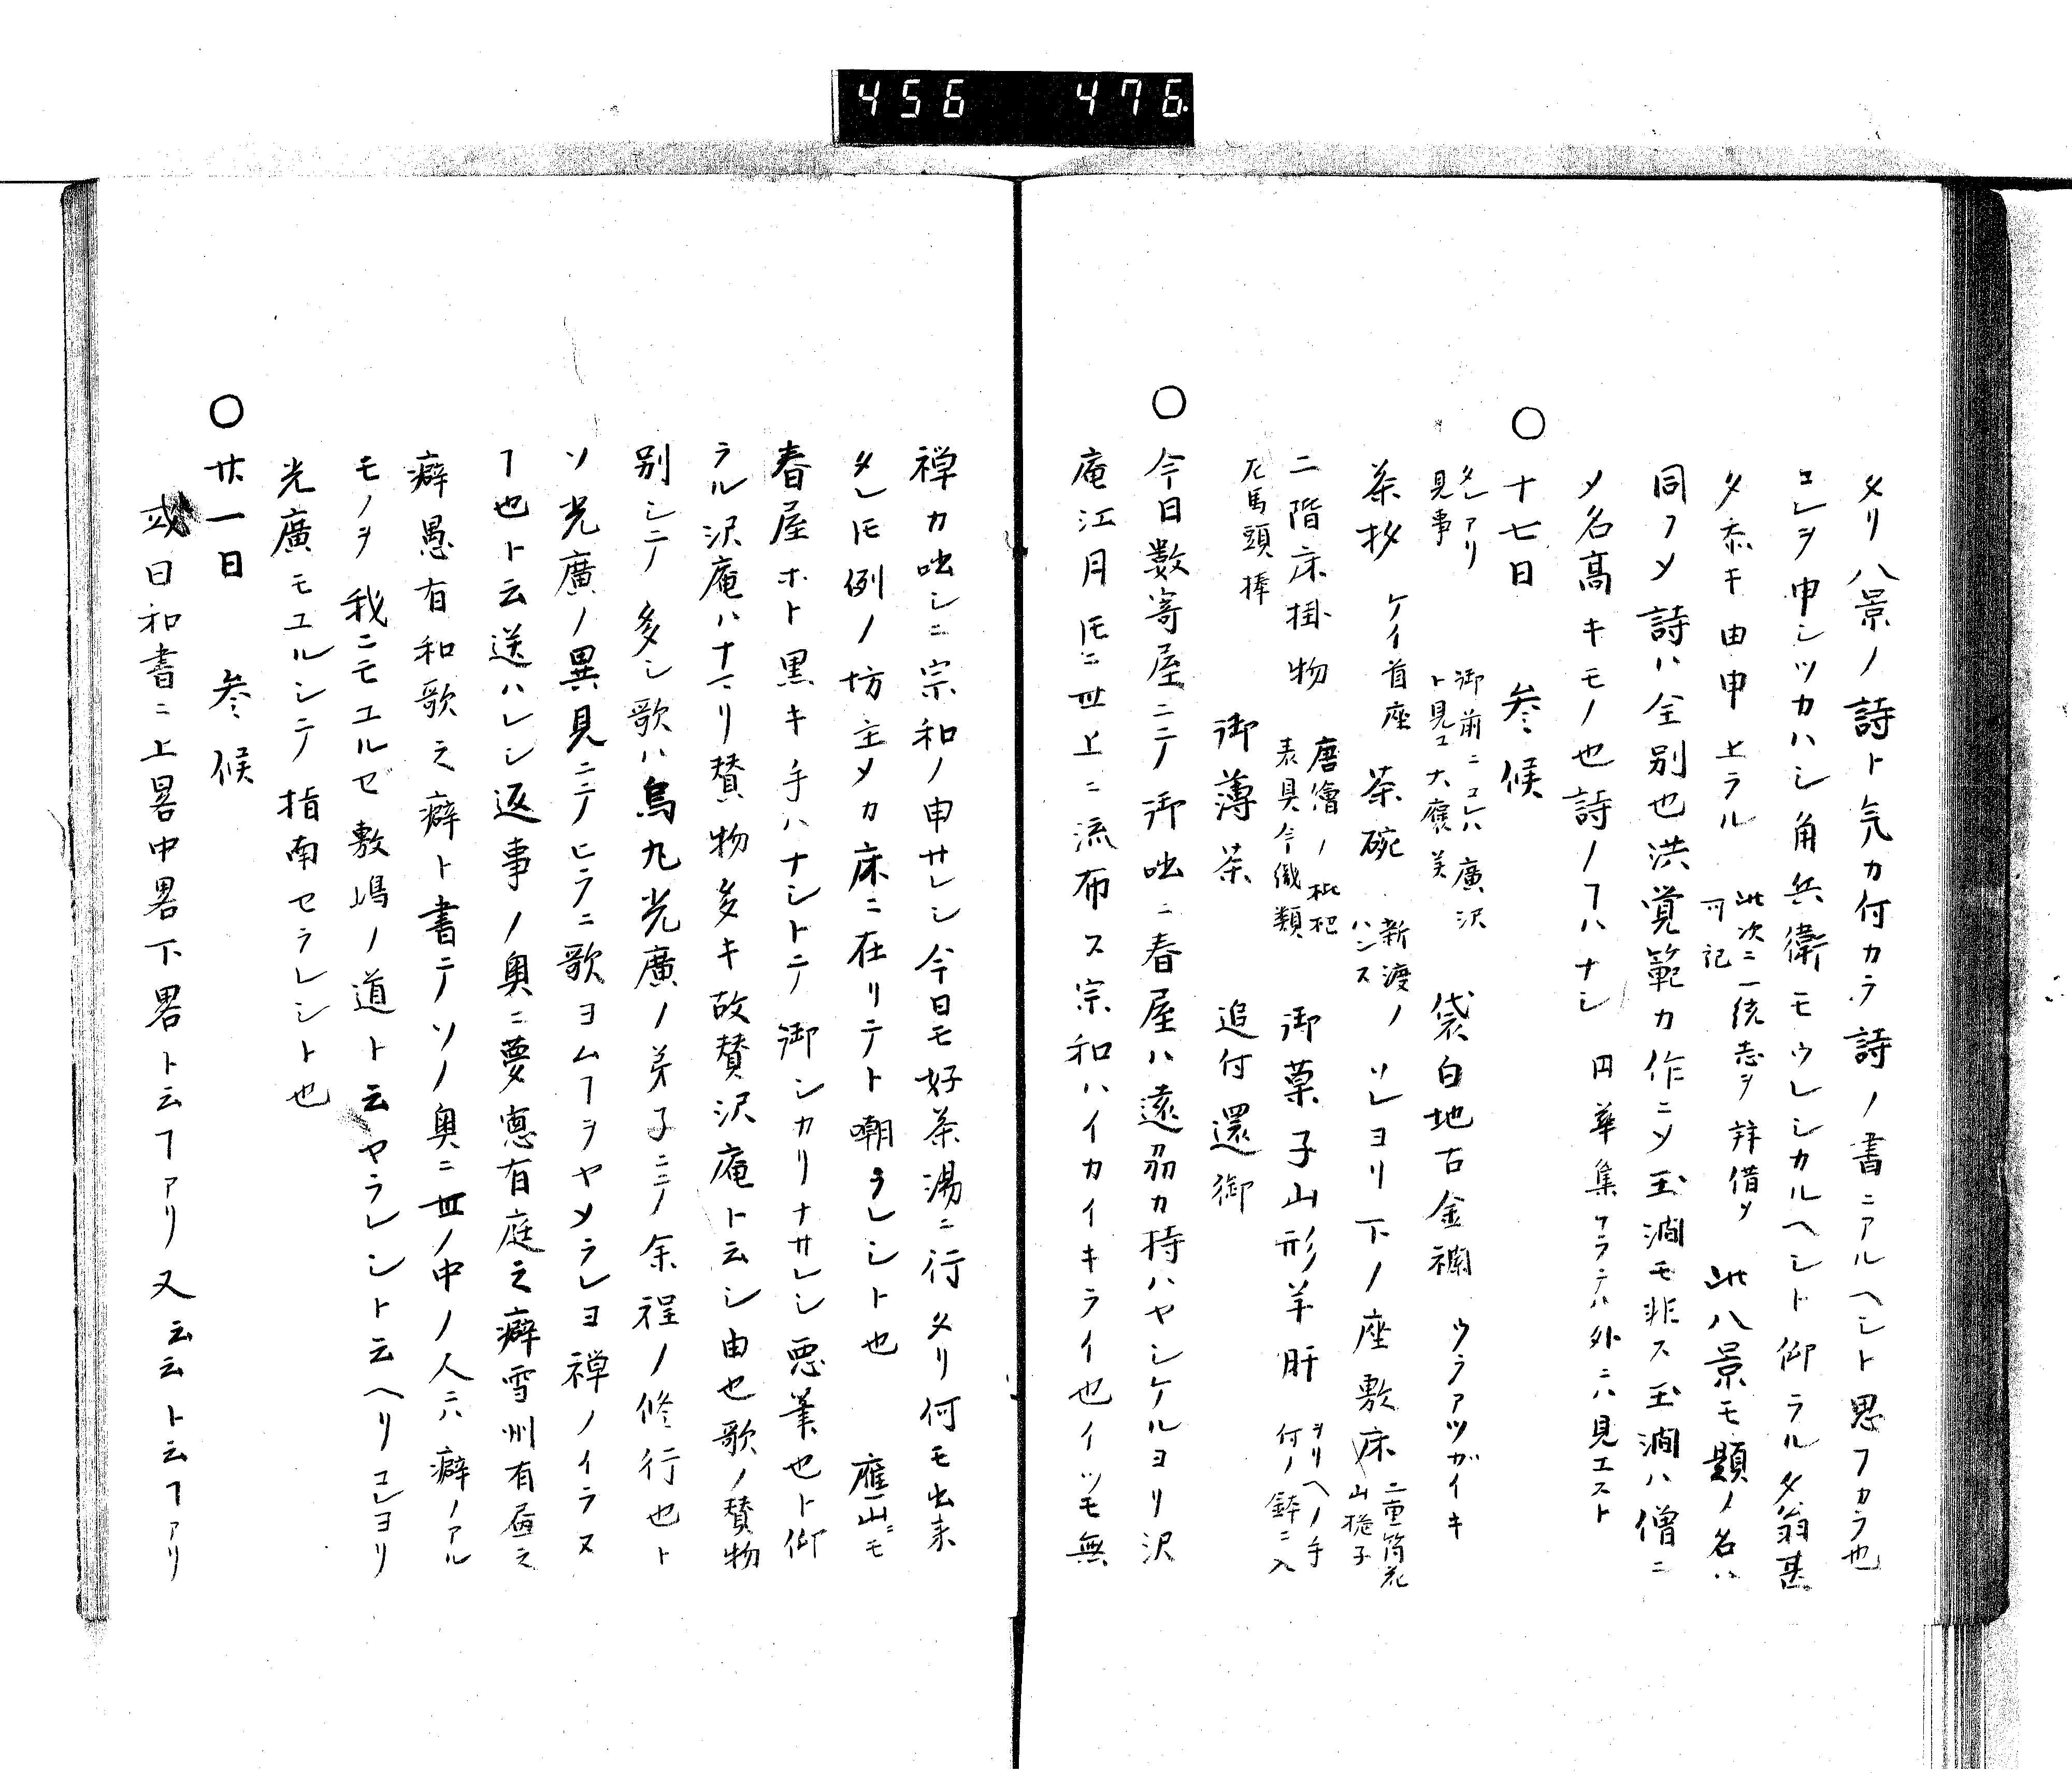 456　476
タリ八景ノ詩ト気カ付カラ詩ノ書ニアルヘシト思フカラ也
コレヲ申シツカハシ角兵衛モウレシカルヘシト仰ラル夕翁甚
タ忝キ由申上ラル 此次ニ一統志ヲ拝借〆可記 此八景モ題ノ名ハ
同フ〆詩ハ全別也洪覚範カ作ニ〆玉澗モ非ス玉澗ハ僧ニ
〆名高キモノ也詩ノヿハナシ 円華集ナラテハ外ニハ見エスト
○十七日　参候
タレアリ見事 御前ニコレハ廣沢ト見エ大褒美 袋白地古金襴 ウラアツガイキ
茶杪 ケイ首座 茶碗 新渡ノハンス ソレヨリ下ノ座敷床 二重筒花山梔子
二階床掛物 唐繪ノ枇杷表具今織類 御菓子山形羊肝 ヲリヘノ手何ノ鉢ニ入
尤馬頭捧　御薄茶　追付還御
○今日数寄屋ニテ御咄ニ春屋ハ遠刕カ持ハヤシケルヨリ沢
庵江月𪜈ニ世上ニ流布ス宗和ハイカイキライ也イツモ無
禅カ咄シニ宗和ノ申サレシ今日モ好茶湯ニ行タリ何モ出来
タレ𪜈例ノ坊主メカ床ニ在リテト嘲ラレシト也　應山ニモ
春屋ホト黒キ手ハナシトテ御シカリナサレシ悪筆也ト仰
ラル沢庵ハナマリ賛物多キ故賛沢庵ト云シ由也歌ノ賛物
別シテ多シ歌ハ烏丸光廣ノ弟子ニテノ余程ノ修行也ト
ソ光廣ノ異見ニテヒラニ歌ヨムヿヲヤメラレヨ禅ノイラヌ
ヿ也ト云送ハレシ返事ノ奥ニ夢窓有庭之癖雪州有画之
癖愚有和歌之癖ト書テソノ奥ニ世ノ中ノ人ニハ癖ノアル
モノヲ我ニモユルセ敷嶋ノ道ト云ヤラレシト云ヘリコレヨリ
光廣モユルシテ指南セラレシト也
○廿一日　参候
或曰和書ニ上畧中畧下畧ト云ヿアリ又云云ト云ヿアリ